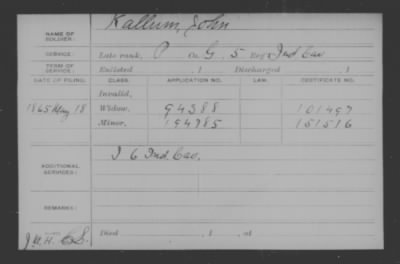 NAME OF SOLDIER: Kallum, John
SERVICE: Late rank, P Co. G, 5 Reg't Ind Cav
TERM OF SERVICE: Enlisted , 1 Discharged , 1
DATE OF FILING. CLASS. APPLICATION NO. LAW. CERTIFICATE NO.
Invalid,
1865 May 18 Widow, 94388 101497
Minor, 194785 151516
ADDITIONAL SERVICES: I 6 Ind. Cav.
REMARKS:
Died , 1 , at